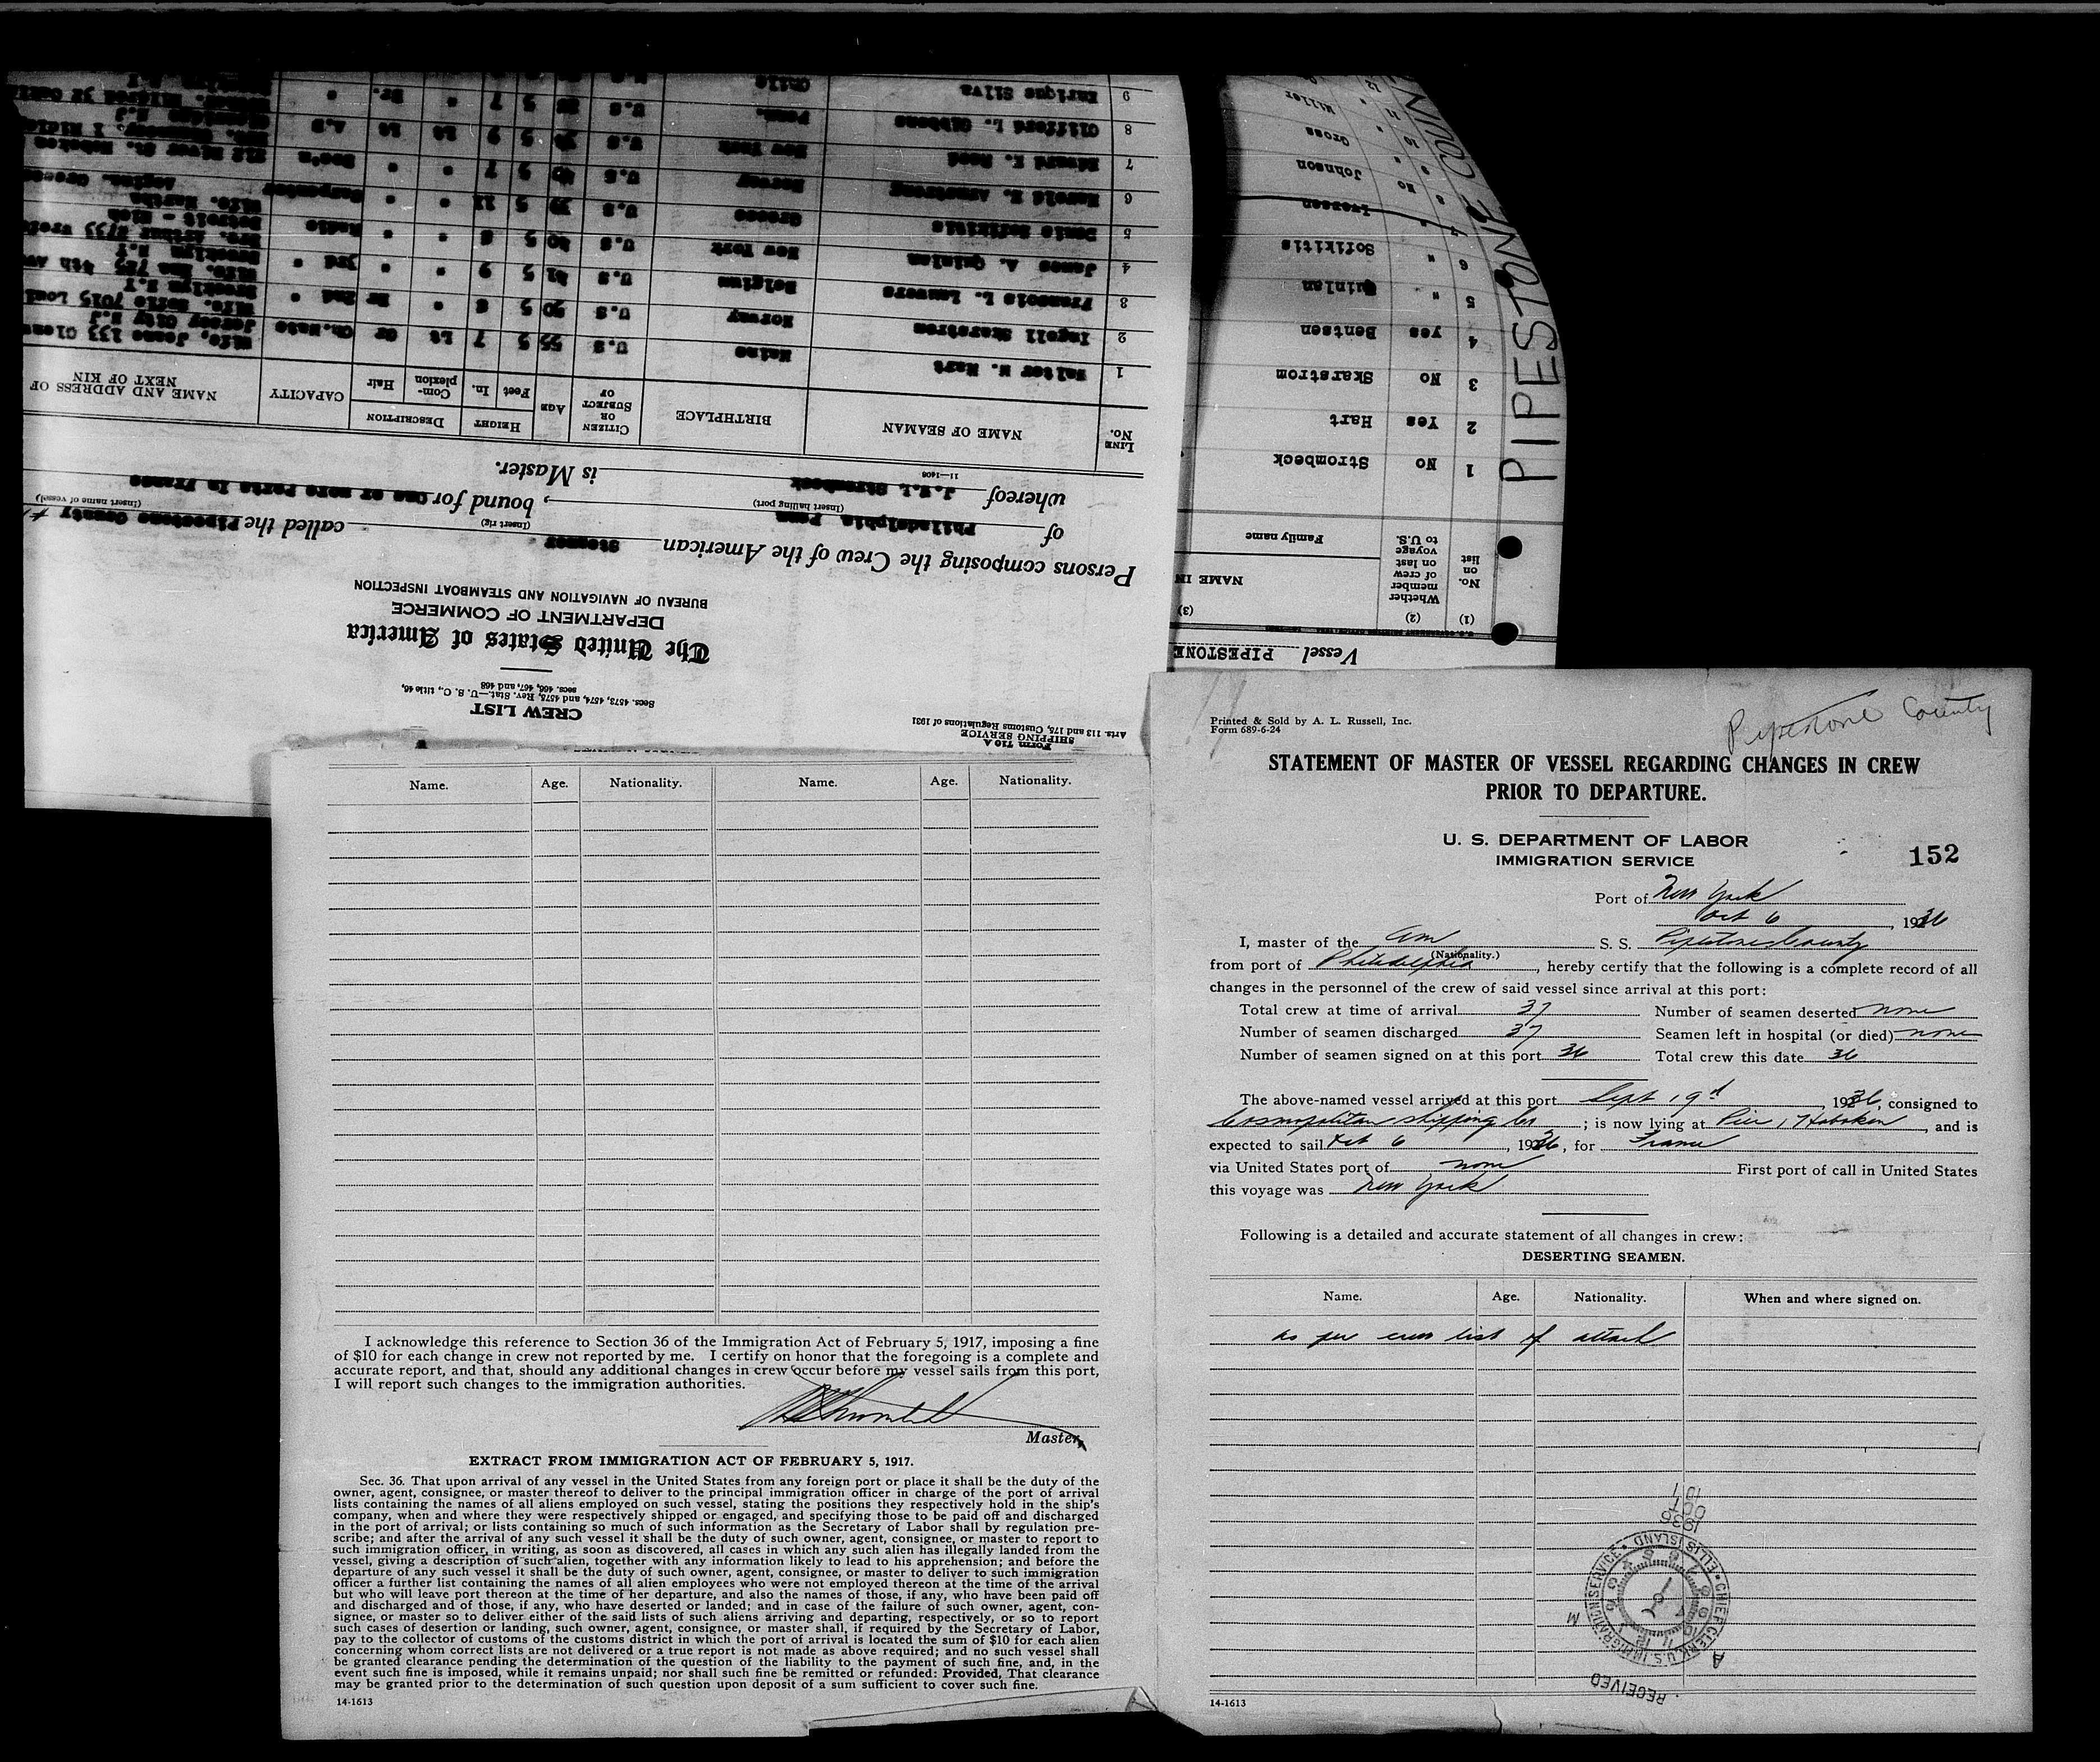 Printed & Sold by A. L. Russell, Inc.
Form 689-6-24
Pipestone County
STATEMENT OF MASTER OF VESSEL REGARDING CHANGES IN CREW
PRIOR TO DEPARTURE.
U. S. DEPARTMENT OF LABOR
IMMIGRATION SERVICE
152
Port of New York
Oct 6, 1936
I, master of the Am S. S. Pipestone County
(Nationality.)
from port of Philadelphia, hereby certify that the following is a complete record of all
changes in the personnel of the crew of said vessel since arrival at this port:
Total crew at time of arrival 37 Number of seamen deserted none
Number of seamen discharged 37 Seamen left in hospital (or died) none
Number of seamen signed on at this port 36 Total crew this date 36
The above-named vessel arrived at this port Sept 19, 1936, consigned to
Cosmopolitan Shipping Co; is now lying at Pier 1, Hoboken, and is
expected to sail Oct 6, 1936, for France
via United States port of none First port of call in United States
this voyage was New York
Following is a detailed and accurate statement of all changes in crew:
DESERTING SEAMEN.
Name. Age. Nationality. When and where signed on.
as per crew list attach
1936
OCT
RECEIVED
CHIEF CLERK, U.S. IMMIGRATION SERVICE • ELLIS ISLAND •
A M
14-1613
Name. Age. Nationality. Name. Age. Nationality.
I acknowledge this reference to Section 36 of the Immigration Act of February 5, 1917, imposing a fine
of $10 for each change in crew not reported by me. I certify on honor that the foregoing is a complete and
accurate report, and that, should any additional changes in crew occur before my vessel sails from this port,
I will report such changes to the immigration authorities.
Master,
EXTRACT FROM IMMIGRATION ACT OF FEBRUARY 5, 1917.
Sec. 36. That upon arrival of any vessel in the United States from any foreign port or place it shall be the duty of the
owner, agent, consignee, or master thereof to deliver to the principal immigration officer in charge of the port of arrival
lists containing the names of all aliens employed on such vessel, stating the positions they respectively hold in the ship's
company, when and where they were respectively shipped or engaged, and specifying those to be paid off and discharged
in the port of arrival; or lists containing so much of such information as the Secretary of Labor shall by regulation pre-
scribe; and after the arrival of any such vessel it shall be the duty of such owner, agent, consignee, or master to report to
such immigration officer, in writing, as soon as discovered, all cases in which any such alien has illegally landed from the
vessel, giving a description of such alien, together with any information likely to lead to his apprehension; and before the
departure of any such vessel it shall be the duty of such owner, agent, consignee, or master to deliver to such immigration
officer a further list containing the names of all alien employees who were not employed thereon at the time of the arrival
but who will leave port thereon at the time of her departure, and also the names of those, if any, who have been paid off
and discharged and of those, if any, who have deserted or landed; and in case of the failure of such owner, agent, con-
signee, or master so to deliver either of the said lists of such aliens arriving and departing, respectively, or so to report
such cases of desertion or landing, such owner, agent, consignee, or master shall, if required by the Secretary of Labor,
pay to the collector of customs of the customs district in which the port of arrival is located the sum of $10 for each alien
concerning whom correct lists are not delivered or a true report is not made as above required; and no such vessel shall
be granted clearance pending the determination of the question of the liability to the payment of such fine, and, in the
event such fine is imposed, while it remains unpaid; nor shall such fine be remitted or refunded: Provided, That clearance
may be granted prior to the determination of such question upon deposit of a sum sufficient to cover such fine.
14-1613
Form 710 A
SHIPPING SERVICE
Arts. 113 and 175, Customs Regulations of 1931
CREW LIST
Secs. 4573, 4574, and 4575, Rev. Stat.—U. S. C., title 46,
secs. 466, 467, and 468
The United States of America
DEPARTMENT OF COMMERCE
BUREAU OF NAVIGATION AND STEAMBOAT INSPECTION
Persons composing the Crew of the American Steamer called the Pipestone County
(Insert rig) (Insert name of vessel)
of Philadelphia Penn, bound for One or more ports in France
(Insert hailing port)
whereof Strombeck is Master.
11—1406
LINE No. NAME OF SEAMAN BIRTHPLACE CITIZEN OR SUBJECT OF AGE HEIGHT Feet In. DESCRIPTION Complexion Hair CAPACITY NAME AND ADDRESS OF NEXT OF KIN
1 Walter W. Hart Maine U.S 55 5 7 Lt Gr Ch.Mate Wife, Jesse 133 Jersey City N.J
2 Ingolf Skarstrom Norway U.S 50 5 8 " Br 2nd " Wife. Sofie 7015 Brooklyn N.Y
3 Francois L. Lauvers Belgium U.S 41 5 9 " " 3rd " Wife. 725 4th Av Brooklyn N.Y
4 James A. Quinlan New York U.S 40 5 8 " " Radio Mrs. Arthur 2733 Detroit - Mich
5 Denis Sofikitis Greece U.S 39 5 11 " " Carpenter Wife. Martha Greece
6 Harold E. Armstrong Norway U.S 5 7 " " Bos'n 212 River St. Hoboken
7 Edward F. Reed New York U.S 5 9 Lt Lt A.B
8 Clifford L. Gibbons Penn. U.S 5 7 " Br. "
9 Enrique Silva Chile
Vessel PIPESTONE
(1) (2) (3)
No. on list Whether member of crew on last voyage to U.S. NAME IN
Family name
1 No Strombeck
2 Yes Hart
3 No Skarstrom
4 yes Bentsen
5 " Quinlan
6 " Sofikitis
7 " Iversen
No Johnson
10 " Gross
11 " Miller
12
PIPESTONE COUN